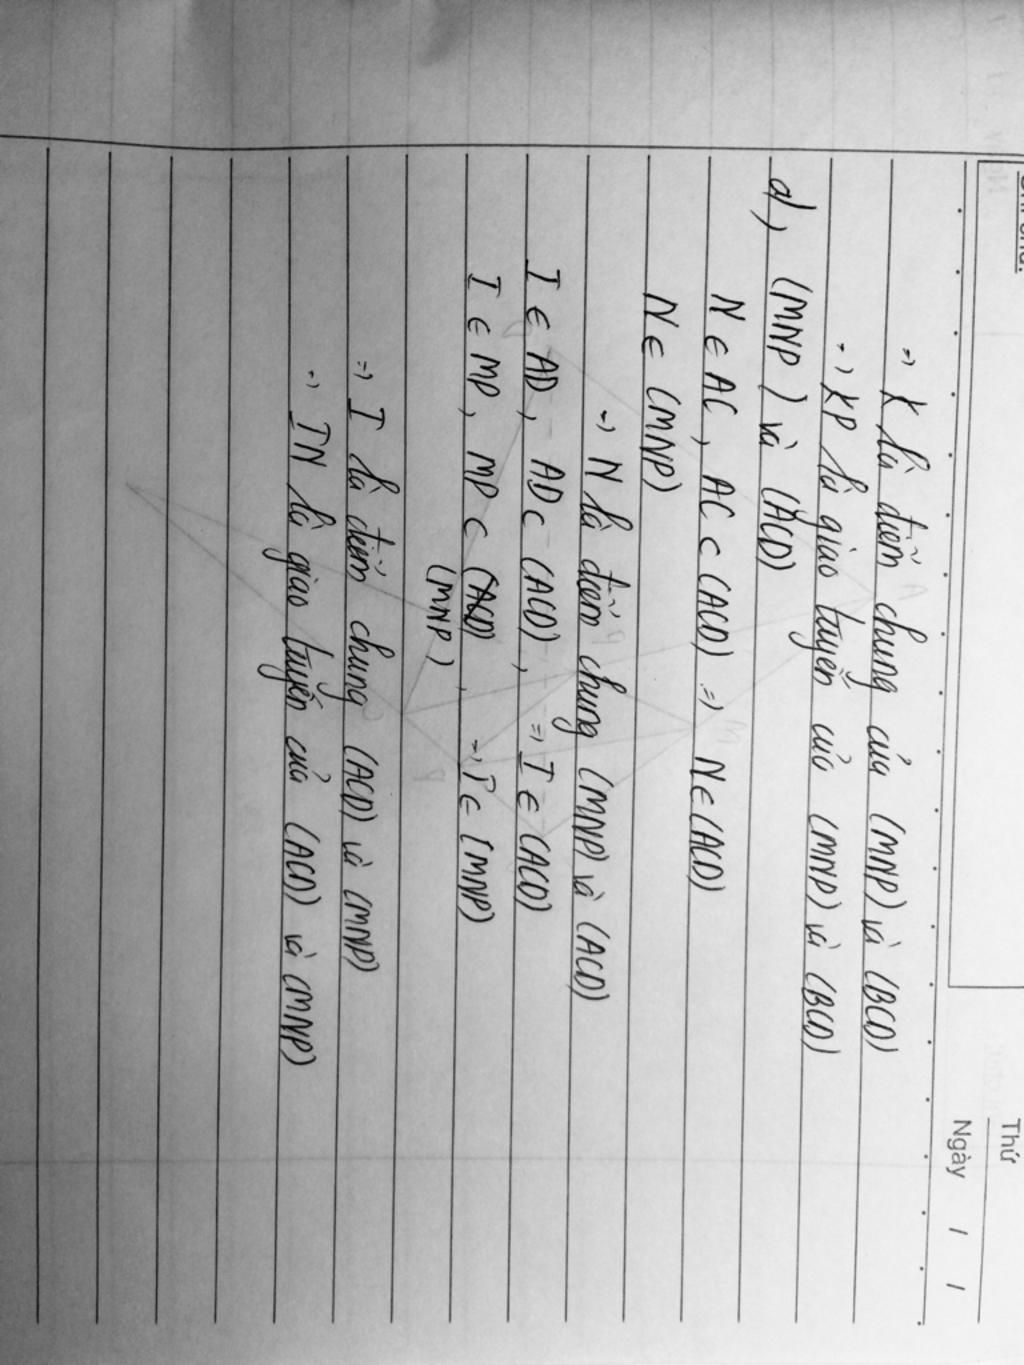 Thứ
Ngày / /
=> K là điểm chung của (MNP) và (BCD)
=> KP là giao tuyến của (MNP) và (BCD)
d), (MNP) và (ACD)
N ∈ AC, AC ⊂ (ACD) => N ∈ (ACD)
N ∈ (MNP)
=> N là điểm chung (MNP) và (ACD)
I ∈ AD, AD ⊂ (ACD), => I ∈ (ACD)
I ∈ MP, MP ⊂ (MNP), => I ∈ (MNP)
=> I là điểm chung (ACD) và (MNP)
=> IN là giao tuyến của (ACD) và (MNP)